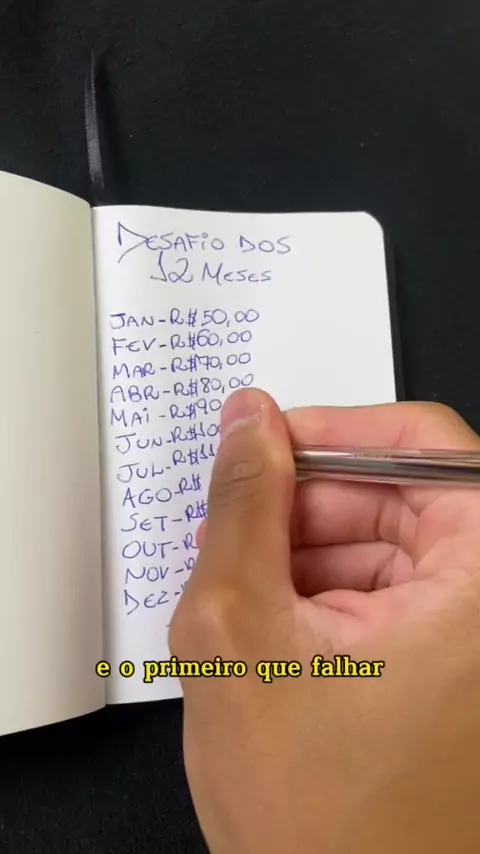 DESAFIO DOS
12 MESES
JAN-R$50,00
FEV-R$60,00
MAR-R$70,00
ABR-R$80,00
MAI-R$90
JUN-R$10
JUL-R$11
AGO-R$
SET-R$
OUT-R
NOV-R
DEZ-
e o primeiro que falhar